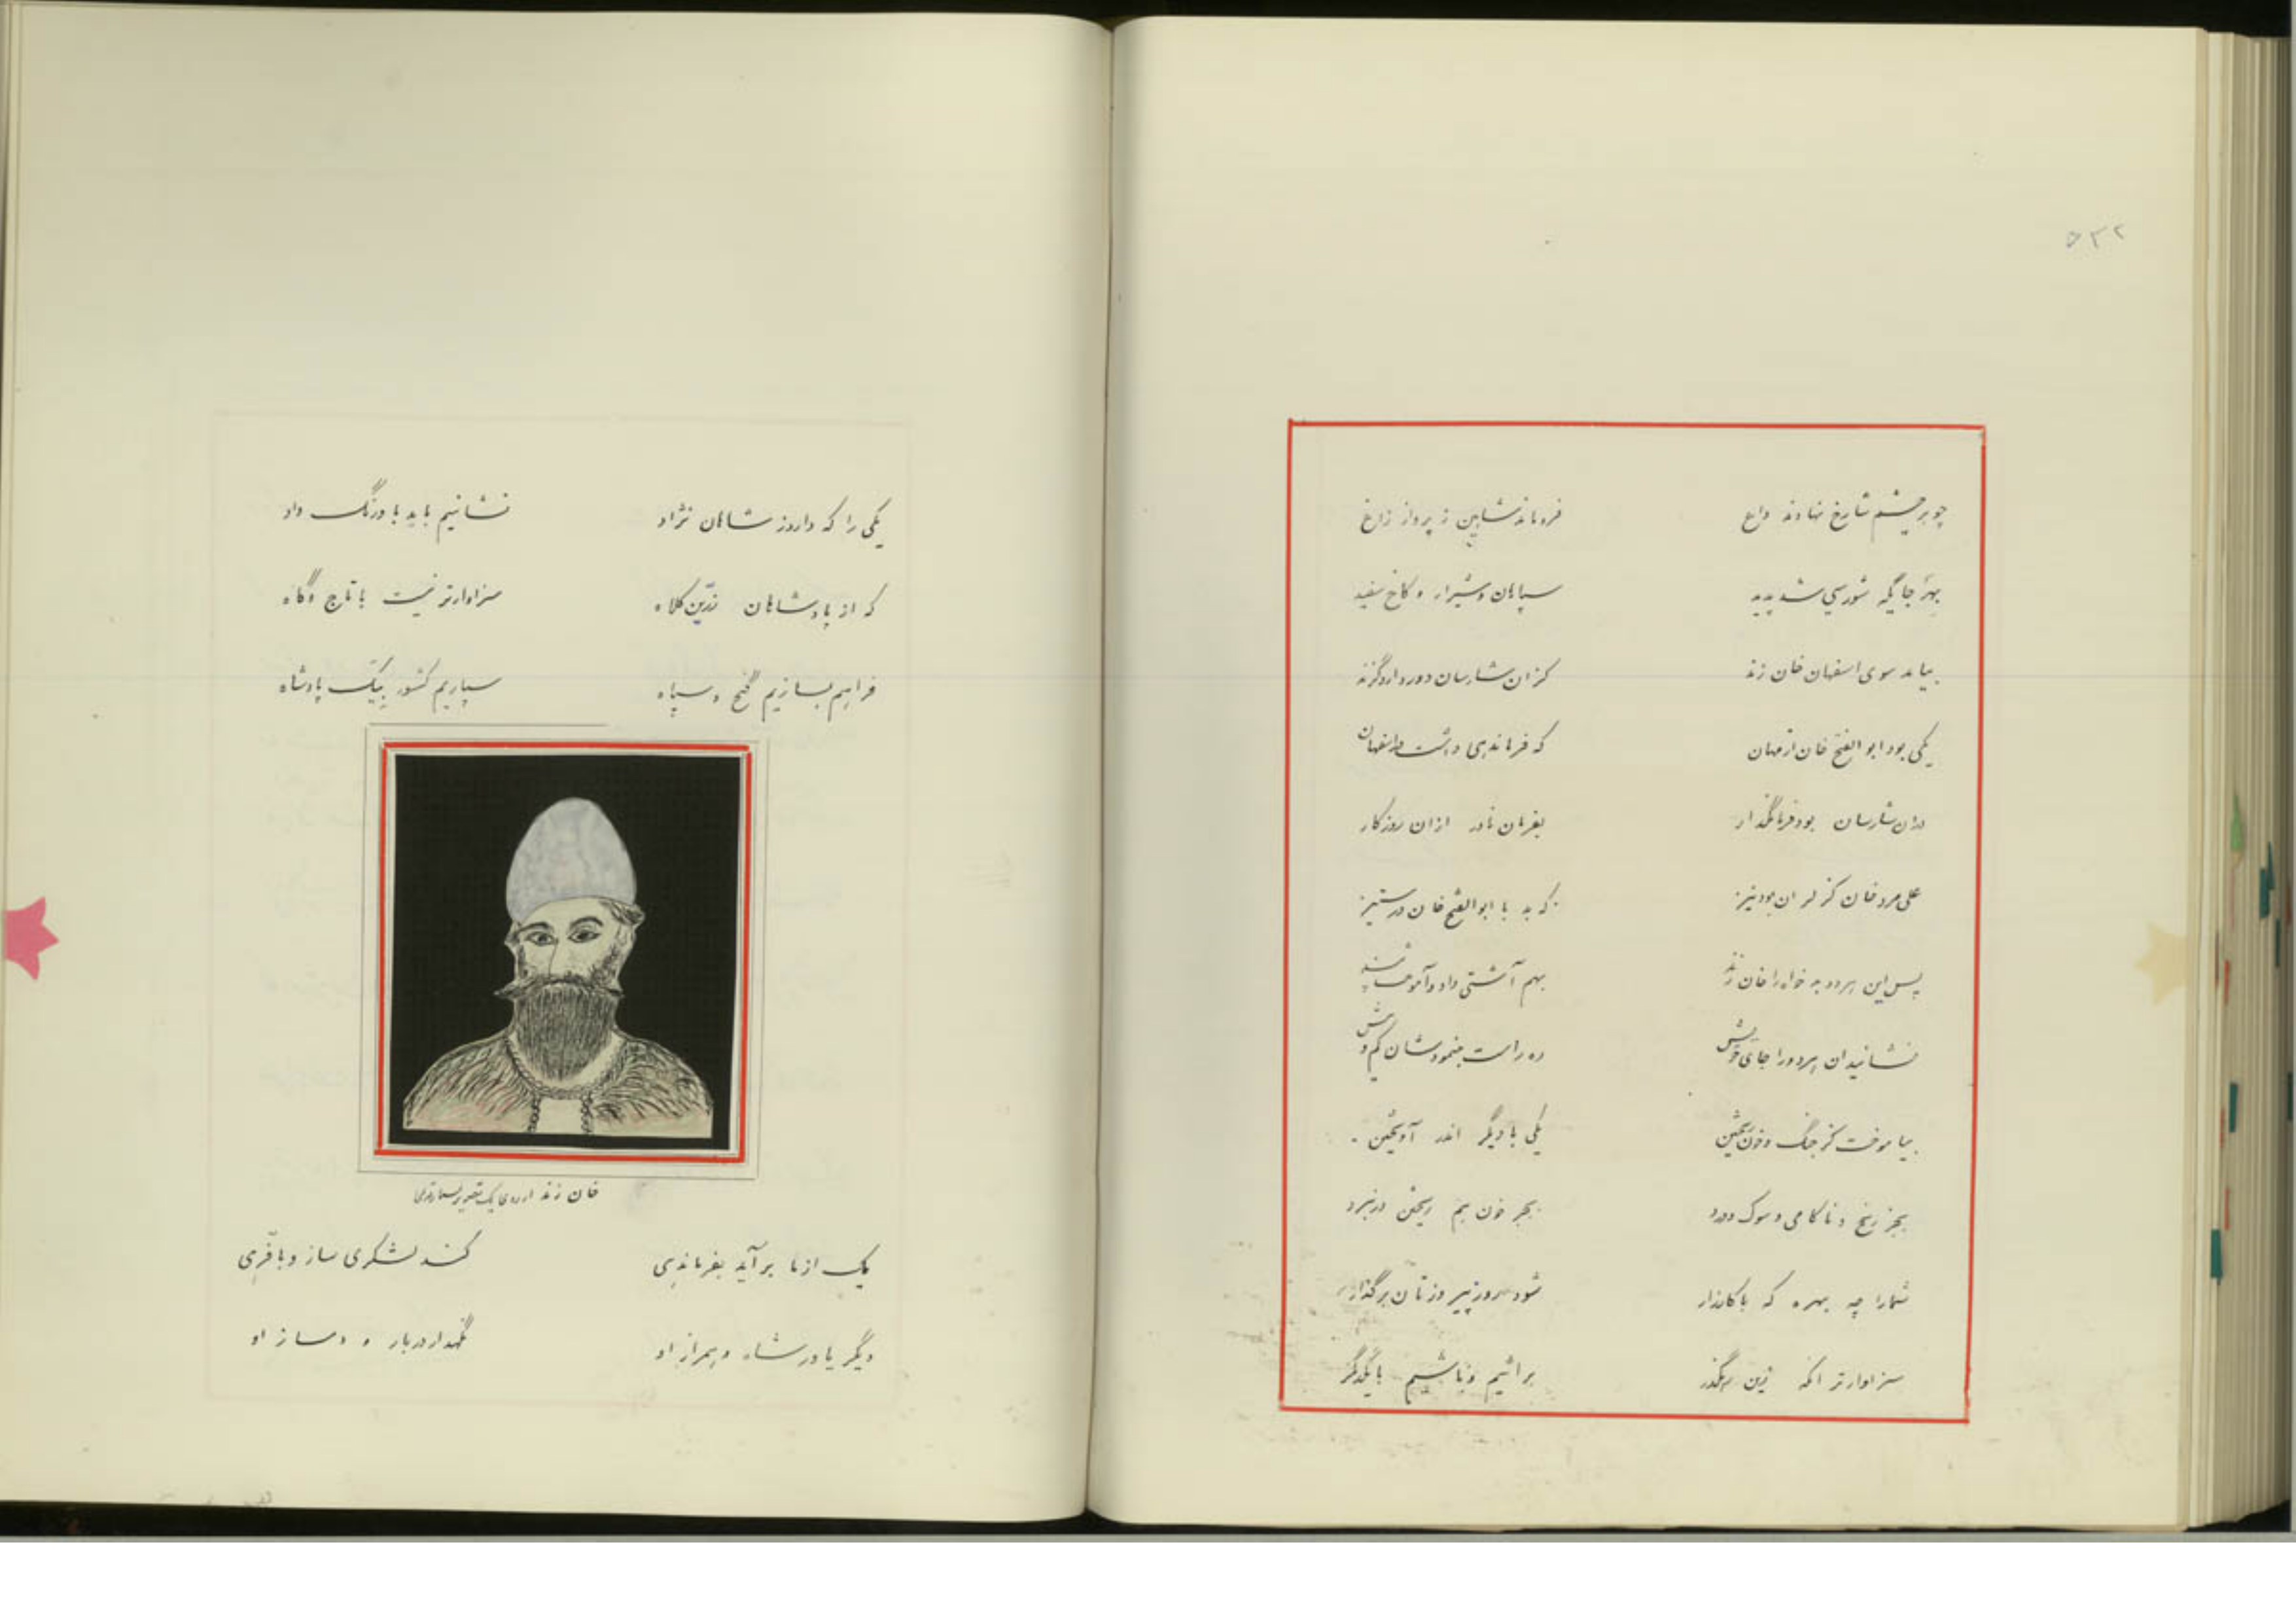 ۵۳۲
چو بر چشم شارخ نهادند داغ فروماند شاهین ز پرواز زاغ
بهر جایگه شورسی شد پدید سپاهان و شیراز و کاخ سفید
بیامد سوی اسفهان خان زند کزان شارسان دور دارد گزند
یکی بود ابوالفتح خان از مهان که فرماندهی داشت در اسفهان
دران شارسان بود فرمانگذار بفرمان نادر ازان روزگار
علی مرد خان کز لران بود نیز که بد با ابوالفتح خان در ستیز
پس این هر دو به خواه را خان زند بهم آشتی داد و آموخت پند
نشانید ان هر دو را جای خویش ره راست بنمودشان کم و بیش
بیاموخت کز جنگ و خون ریختن یکی با دیگر اندر آویختن
بجز رنج و ناکامی و سوک و درد بجز خون هم ریختن در نبرد
شما را چه بهره که با کارزار شود روز پیروزتان برگذار
سزاوارتر انکه زین رهگذر برائیم و نباشیم با یکدگر
یکی را که دارد ز شاهان نژاد نشانیم باید باورنگ داد
که از پادشاهان زرّین کلاه سزاوارتر نیست با تاج و گاه
فراهم بسازیم گنج و سپاه سپاریم کشور بیک پادشاه
خان زند از روی یک تصویر
یک از ما برآید بفرماندهی کند لشکری ساز و با فرّهی
دیگر یاور شاه و همراز او نگهدار دربار و دمساز او